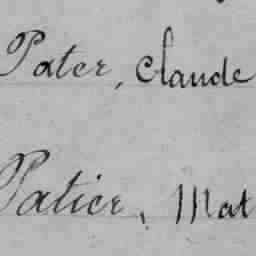 Pater, Claude
Patier, Mat